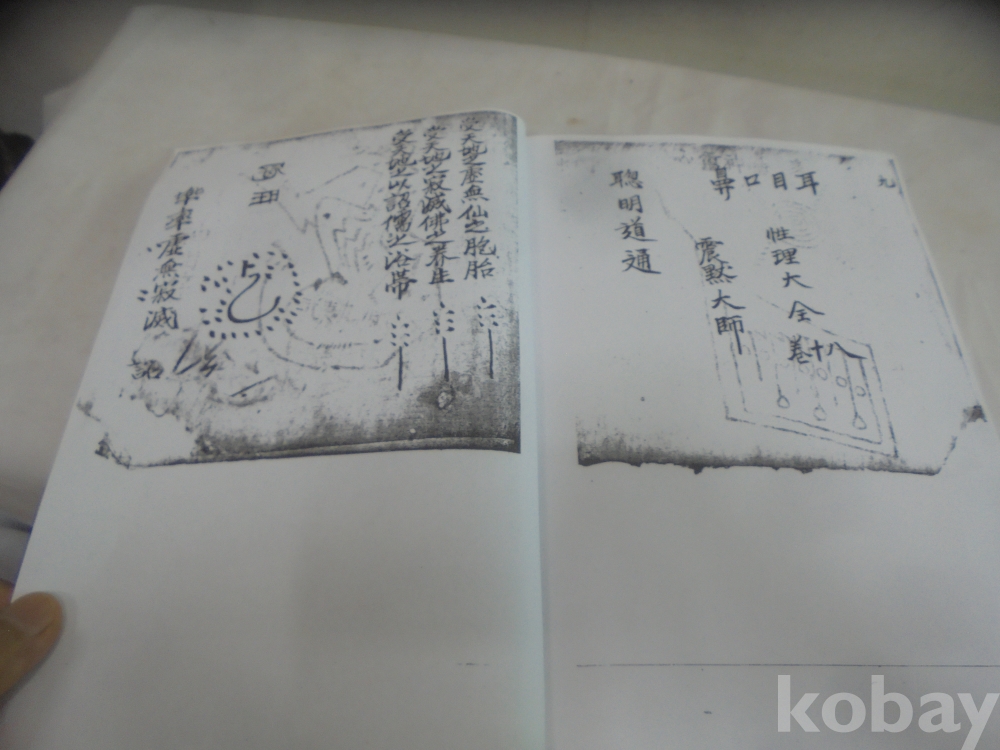 九
耳目口鼻
性理大全
卷十八
震默大師
聰明道通
受天地之虛無仙之胞胎
受天地之寂滅佛之養生
受天地之以詔儒之浴帶
虛無寂滅
詔
kobay